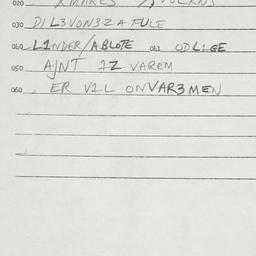 020
030 DI L3VON3Z A FULE
040 L1NDER/ABLOTE 041 ODL1GE
050 AJNT 1Z VAREM
060 ER V1L ONVAR3MEN